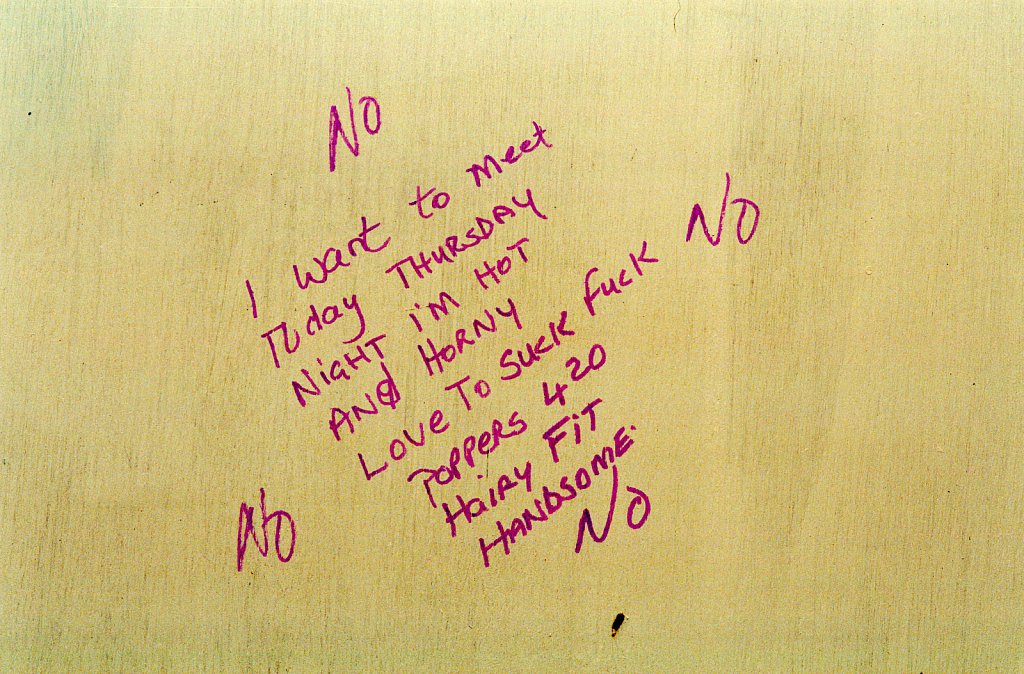 NO
I want to meet
TUday THURSDAY
NIGHT I'M HOT
AND HORNY
LOVE TO SUCK FUCK
POPPERS 420
HAIRY FIT
HANDSOME.
NO
NO
NO